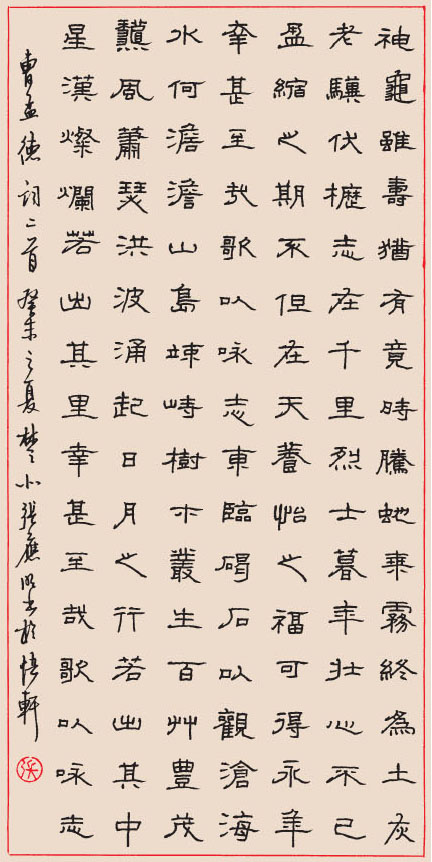 神龜雖壽猶有竟時騰虵乘霧終為土灰
老驥伏櫪志在千里烈士暮年壯心不已
盈縮之期不但在天養怡之福可得永年
幸甚至哉歌以咏志東臨碣石以觀滄海
水何澹澹山島竦峙樹木叢生百艸豐茂
風蕭瑟洪波涌起日月之行若出其中
星漢燦爛若出其里幸甚至哉歌以咏志
曹孟德詞二首癸未之夏楚小張應明书於悟軒